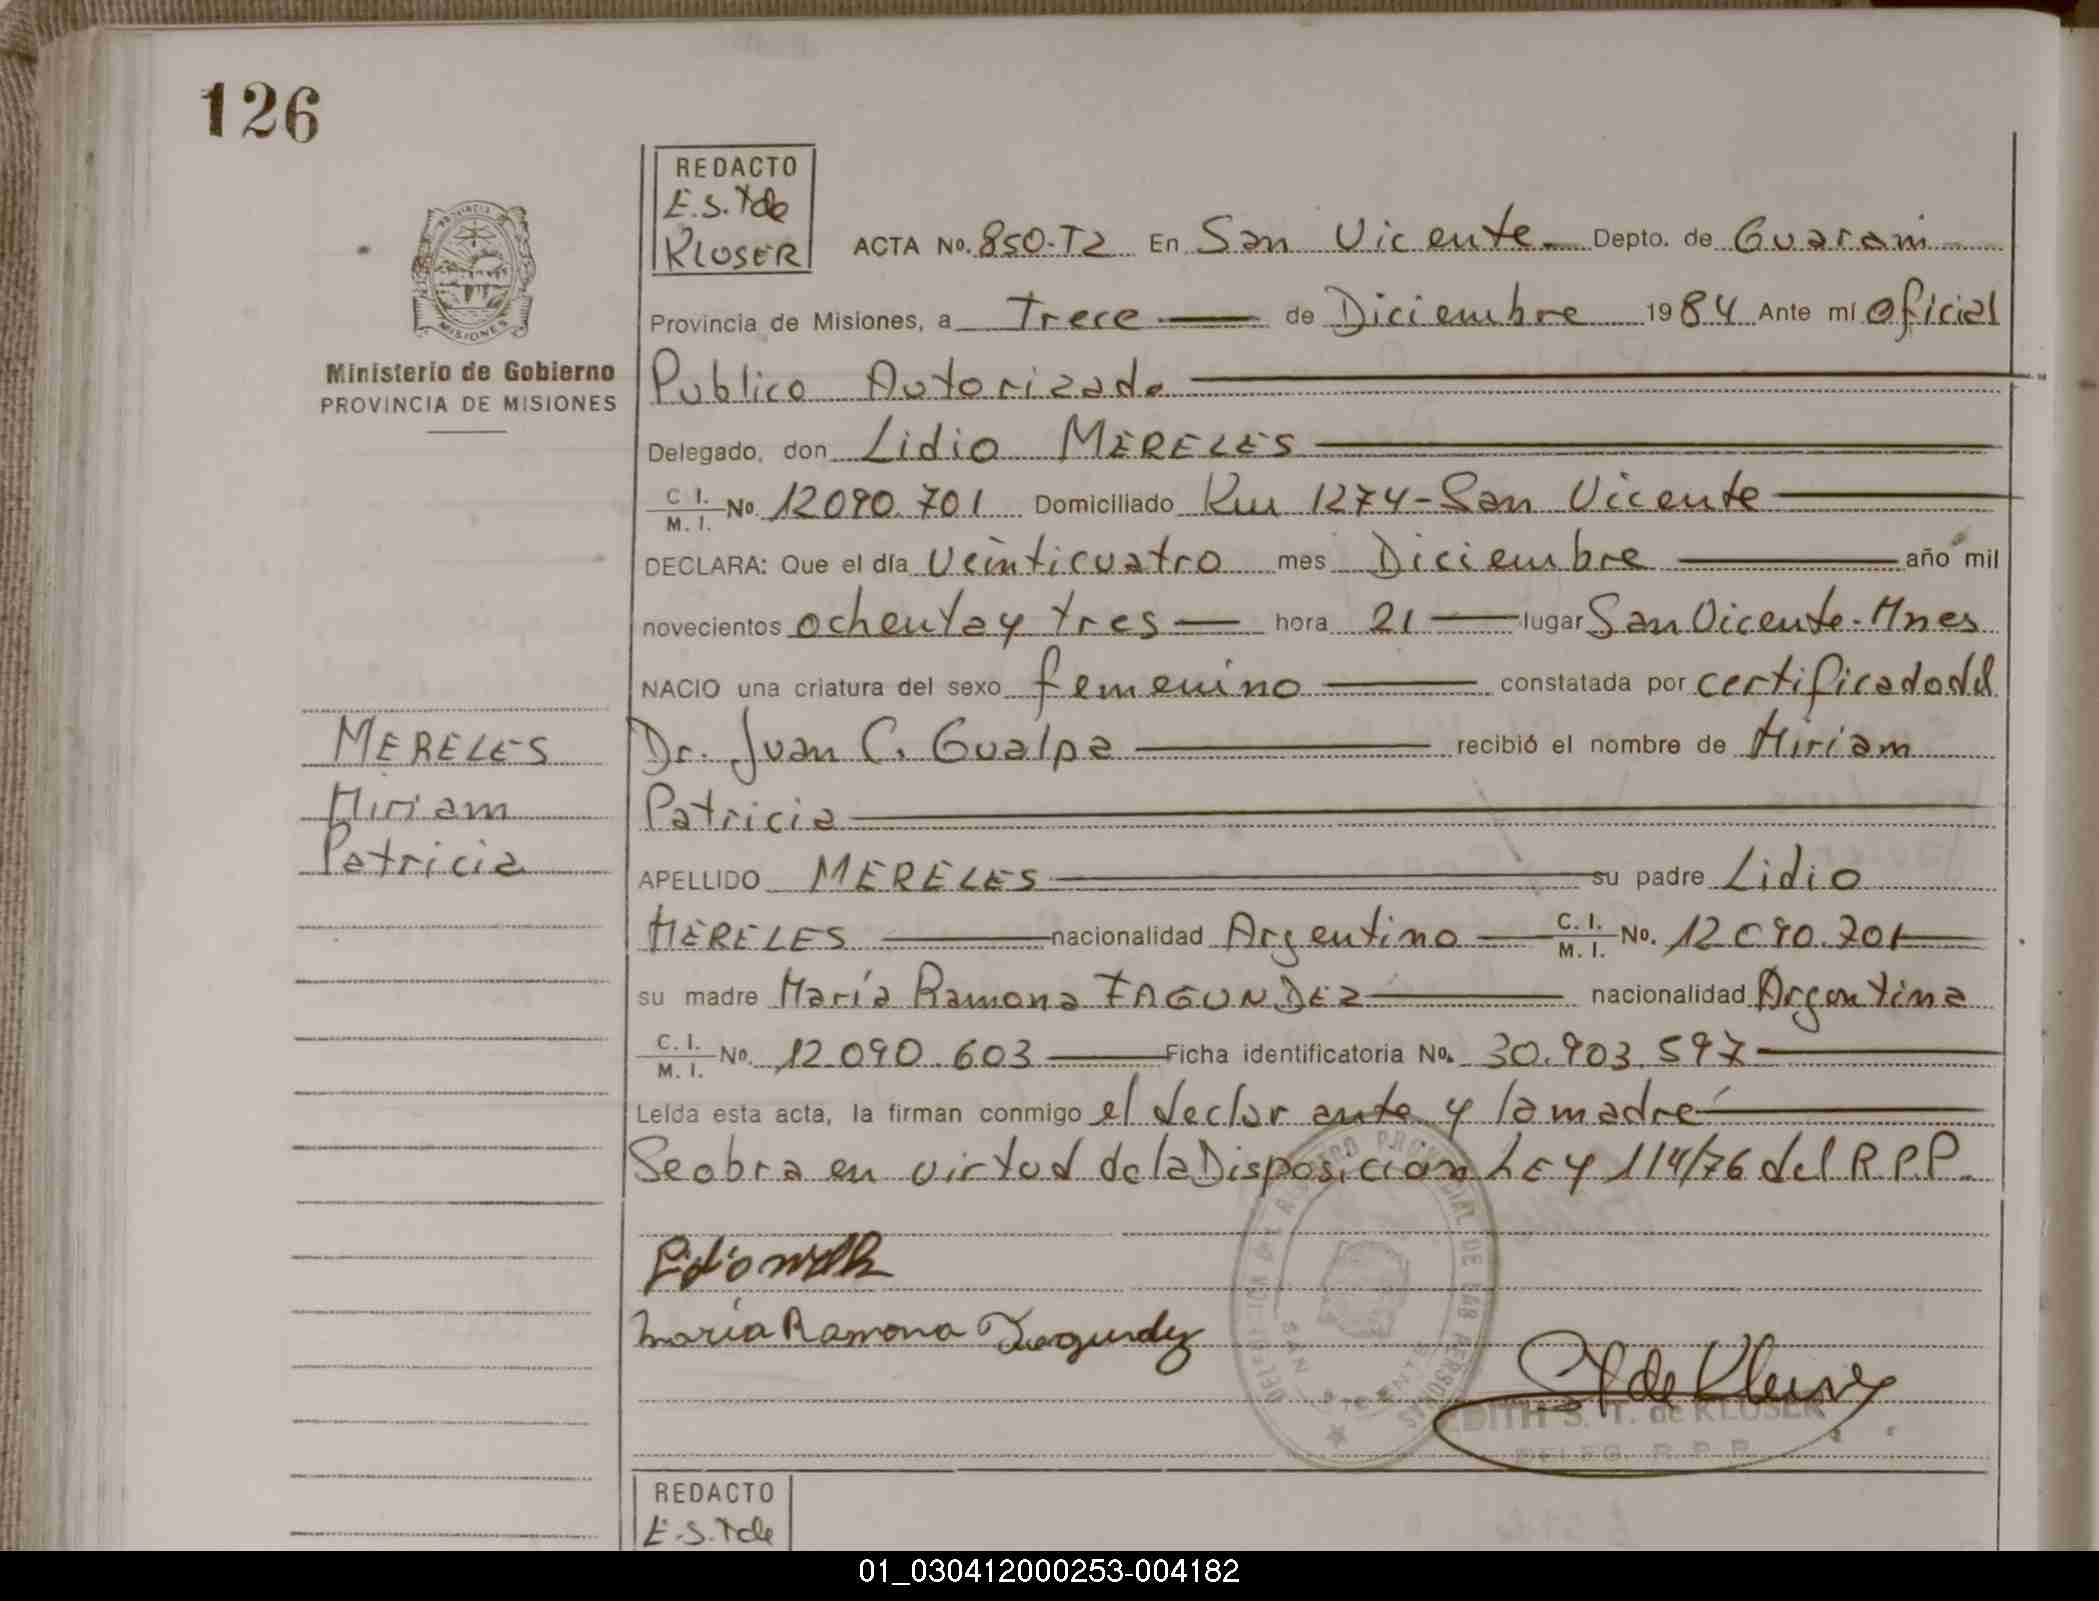 126
REDACTO
E.S.T de
KLOSER
PROVINCIA
MISIONES
Ministerio de Gobierno
PROVINCIA DE MISIONES
ACTA No. 850-T2 En San Vicente Depto. de Guarani
Provincia de Misiones, a Trece de Diciembre 1984 Ante mi Oficial
Publico Autorizado
Delegado, don Lidio MERELES
C. I.
M. I. No. 12090.701 Domiciliado Km 1274-San Vicente
DECLARA: Que el día Veinticuatro mes Diciembre año mil
novecientos ochenta y tres hora 21 lugar San Vicente-Mnes
NACIO una criatura del sexo femenino constatada por certificado del
Dr. Juan C. Gualpa recibió el nombre de Miriam
Patricia
APELLIDO MERELES su padre Lidio
MERELES nacionalidad Argentino C. I.
M. I. No. 12090.701
su madre María Ramona FAGUNDEZ nacionalidad Argentina
C. I.
M. I. No. 12.090.603 Ficha identificatoria No. 30.903.597
Leída esta acta, la firman conmigo el declarante y la madre
Se obra en virtud de la Disposicion LEY 114/76 del R.P.P.
MERELES
Miriam
Patricia
Lidio
María Ramona Fagundez
DELEGACION DEL REGISTRO PROVINCIAL DE LAS PERSONAS
SAN VICENTE
S T de Kloser
EDITH S. T. de KLOSER
DELEG. R. P. P.
REDACTO
E.S.T de
01_030412000253-004182